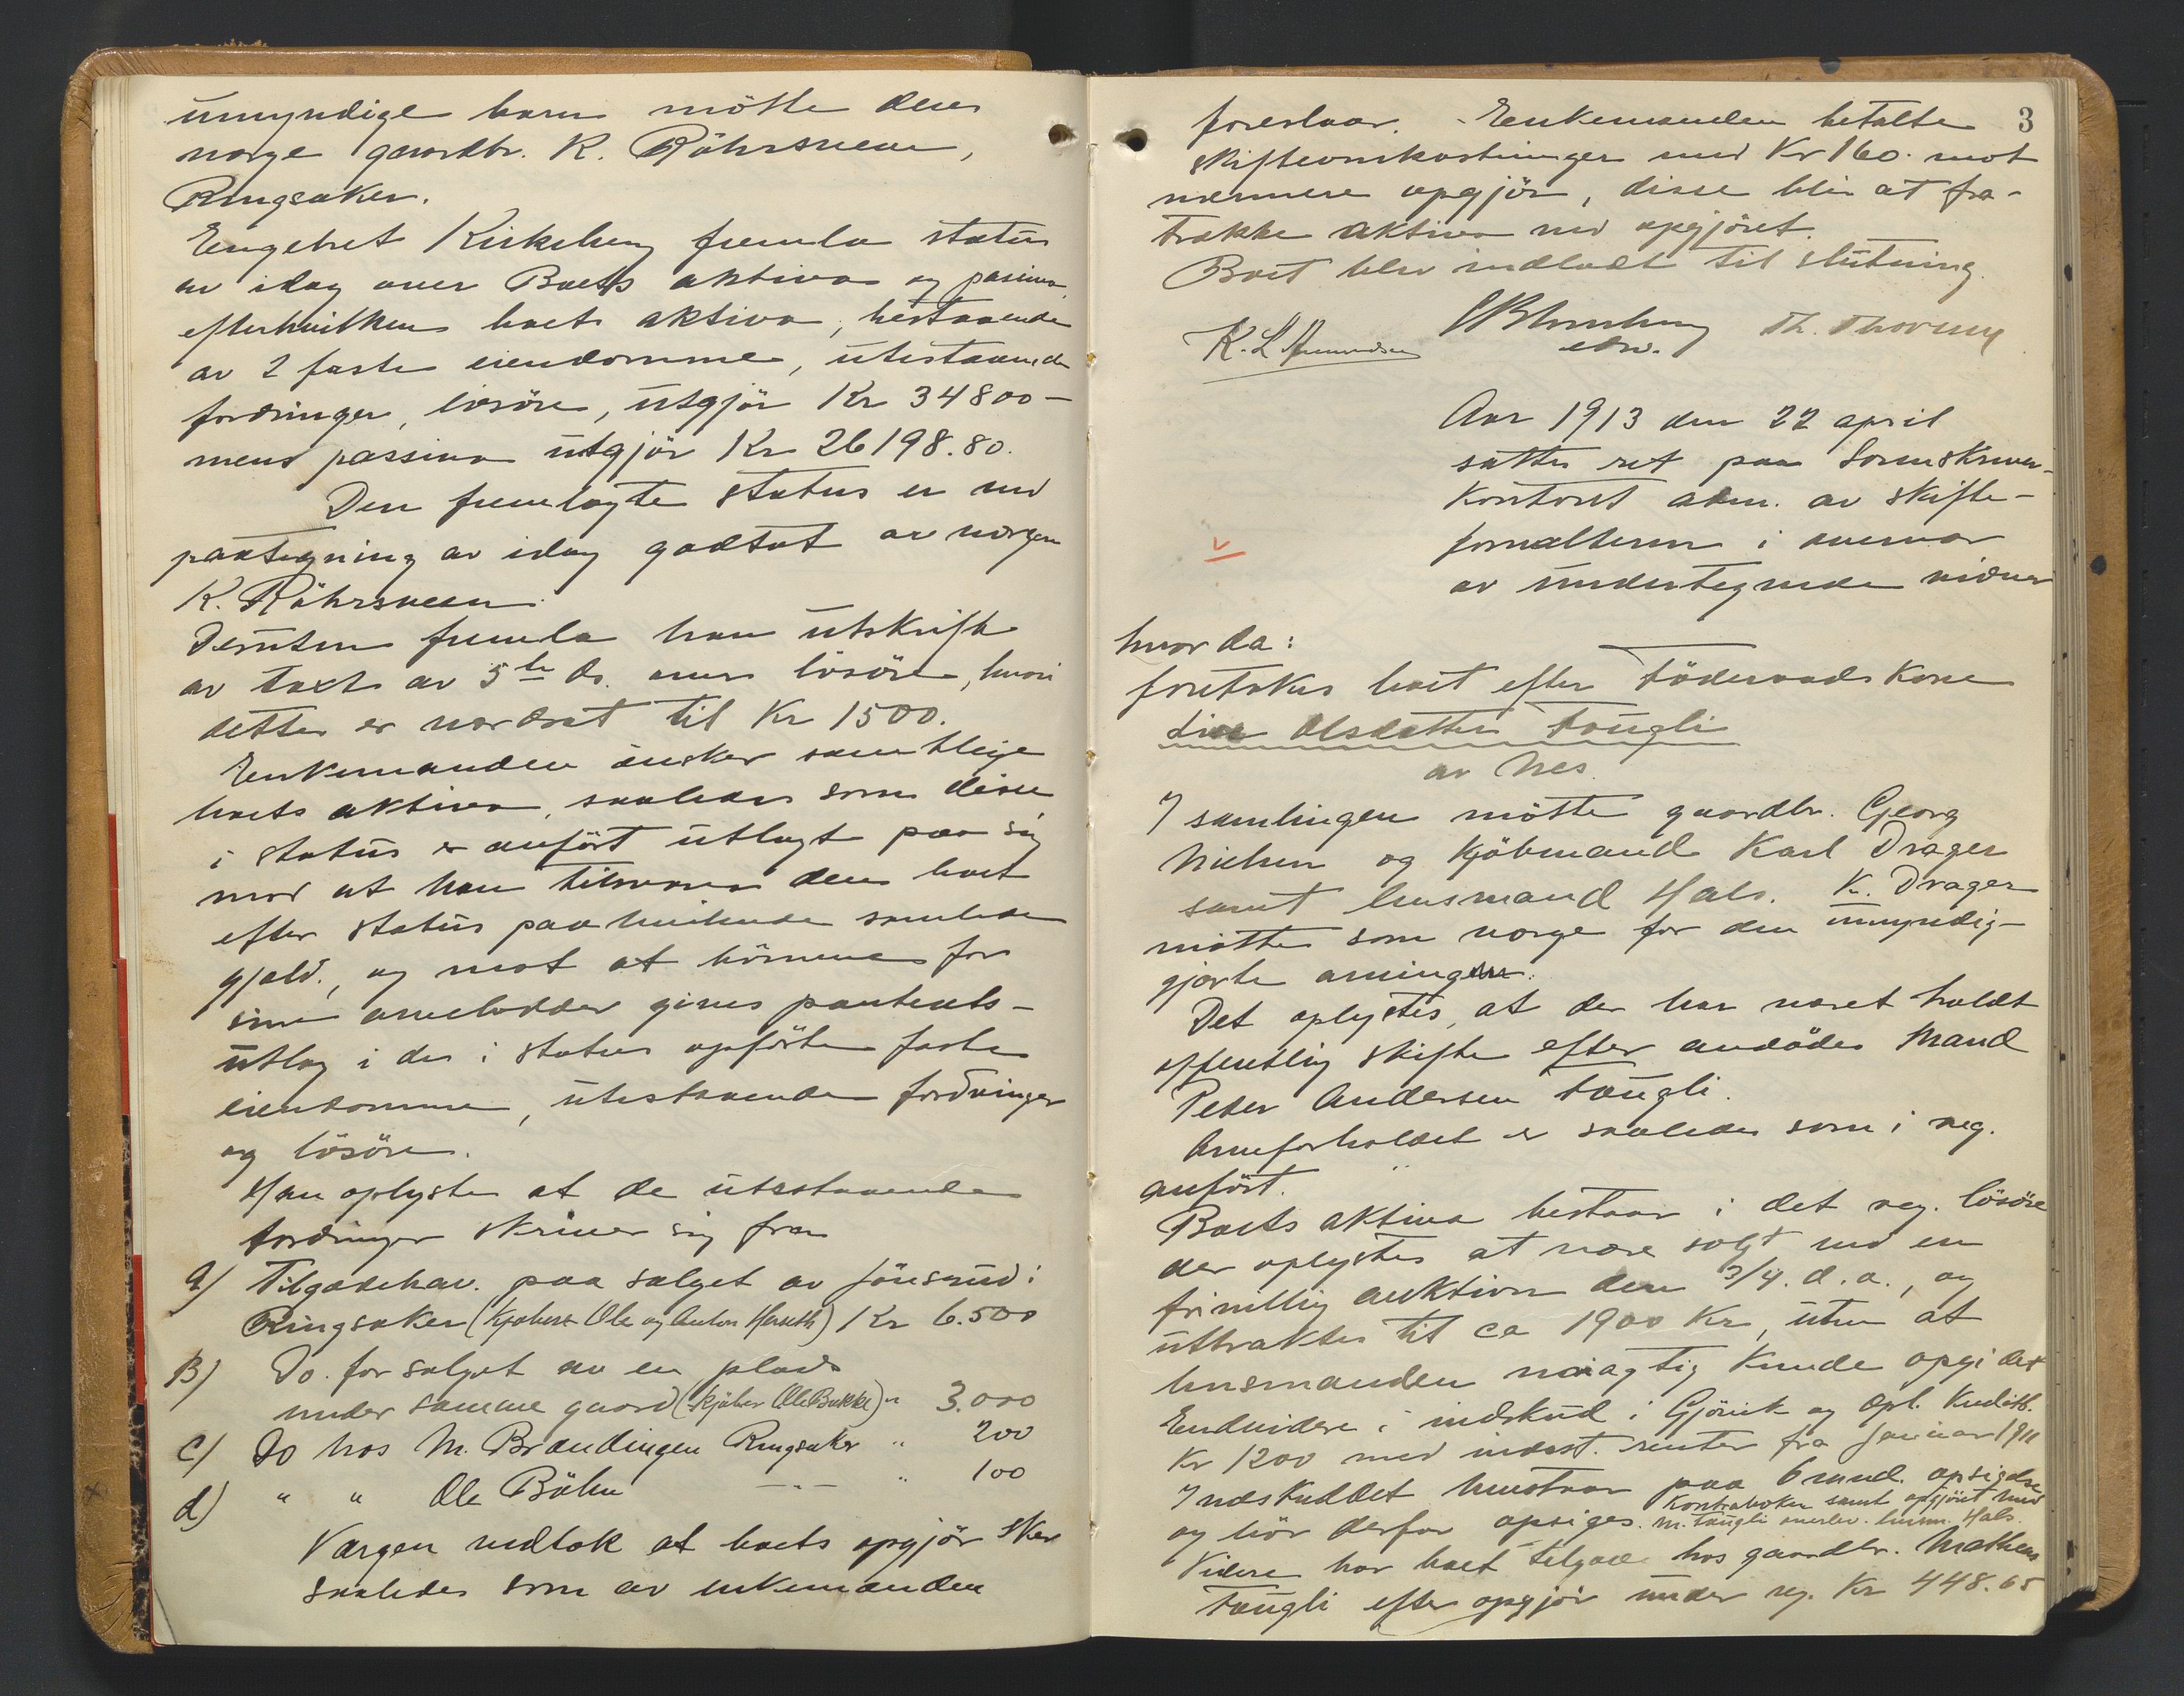 umyndige barn mötte deres
værge gaardbr. K. Röhrsveen,
Ringsaker.
Engebret Kirkeberg fremla status
av idag over Boets aktiva og passiva,
efterhvilken boets aktiva, bestaaende
av 2 faste eiendomme, utestaaende
fordringer, lösöre, utgjör Kr 34800-
mens passiva utgjör Kr 26198.80.
Den fremlagte status er ved
paategning av idag godtat av værgen
K. Röhrsveen.
Desuten fremla han utskrift
av takst av 5te ds. over lösöre, hvori
dette er vurdert til Kr 1500.
Enkemanden önsker samtlige
boets aktiva, saaledes som disse
i status er anfört utlagt paa sig
mod at han tilsvarer den boet
efter status paahvilende samlede
gjæld, og mot at börnene for
sine arvelodder gives panterets-
utlæg i de i status opförte faste
eiendomme, utestaaende fordringer
og lösöre.
Han oplyste at de utestaaende
fordringer skriver sig fra
a) Tilgodehav. paa salget av Jönsrud i
Ringsaker (Kjöbere Ole og Anton Herseth) Kr 6.500
B) Do. for salget av en plads
under samme gaard (kjöber Ole Bakke) " 3.000
c) Do hos M. Brændingen Ringsaker " 200
d) " " Ole Böhn -"- " 100
Værgen vedtok at boets opgjör sker
saaledes som av enkemanden
3
foreslaar. Enkemanden betalte
skifteomkostninger med Kr 160. mot
nærmere opgjör, disse blir at fra-
trække aktiva ved opgjöret.
Boet blev indladt til slutning.
K. L. Amundsen Th. Thorung
edsv.
Aar 1913 den 22 april
sattes ret paa Sorenskriver-
kontoret adm. av skifte-
forvalteren i overvær
av undertegnede vidner
v
hvor da:
foretokes boet efter Föderaadskone
Lise Olsdatter Taugli
av Nes.
I samlingen mötte gaardbr. Georg
Nielsen og Kjöbmand Karl Drager
samt lensmand Hals. K. Drager
mötte som værge for den umyndig-
gjorte arving.
Det oplystes, at der har været holdt
offentlig skifte efter avdödes Mand
Peder Andersen Taugli.
Arveforholdet er saaledes som i reg.
anfört.
Boets aktiva bestaar i det reg. lösöre
der oplystes at være solgt ved en
frivillig auktion den 3/4. d.a., og
utbraktes til ca 1900 Kr, uten at
lensmanden nöiagtig kunde opgi det
Endvidere i indskud i Gjövik og Opl. Kreditb.
Kr 1200 med indest. renter fra Januar 1911
Indskuddet henstaar paa 6 mnd. opsigelse
og bör derfor opsiges. Kontraboken samt opgjöret med
M. Taugli overlev. lensm. Hals.
Videre har boet tilgode hos gaardbr. Mathias
Taugli efter opgjör under reg. Kr 448.65